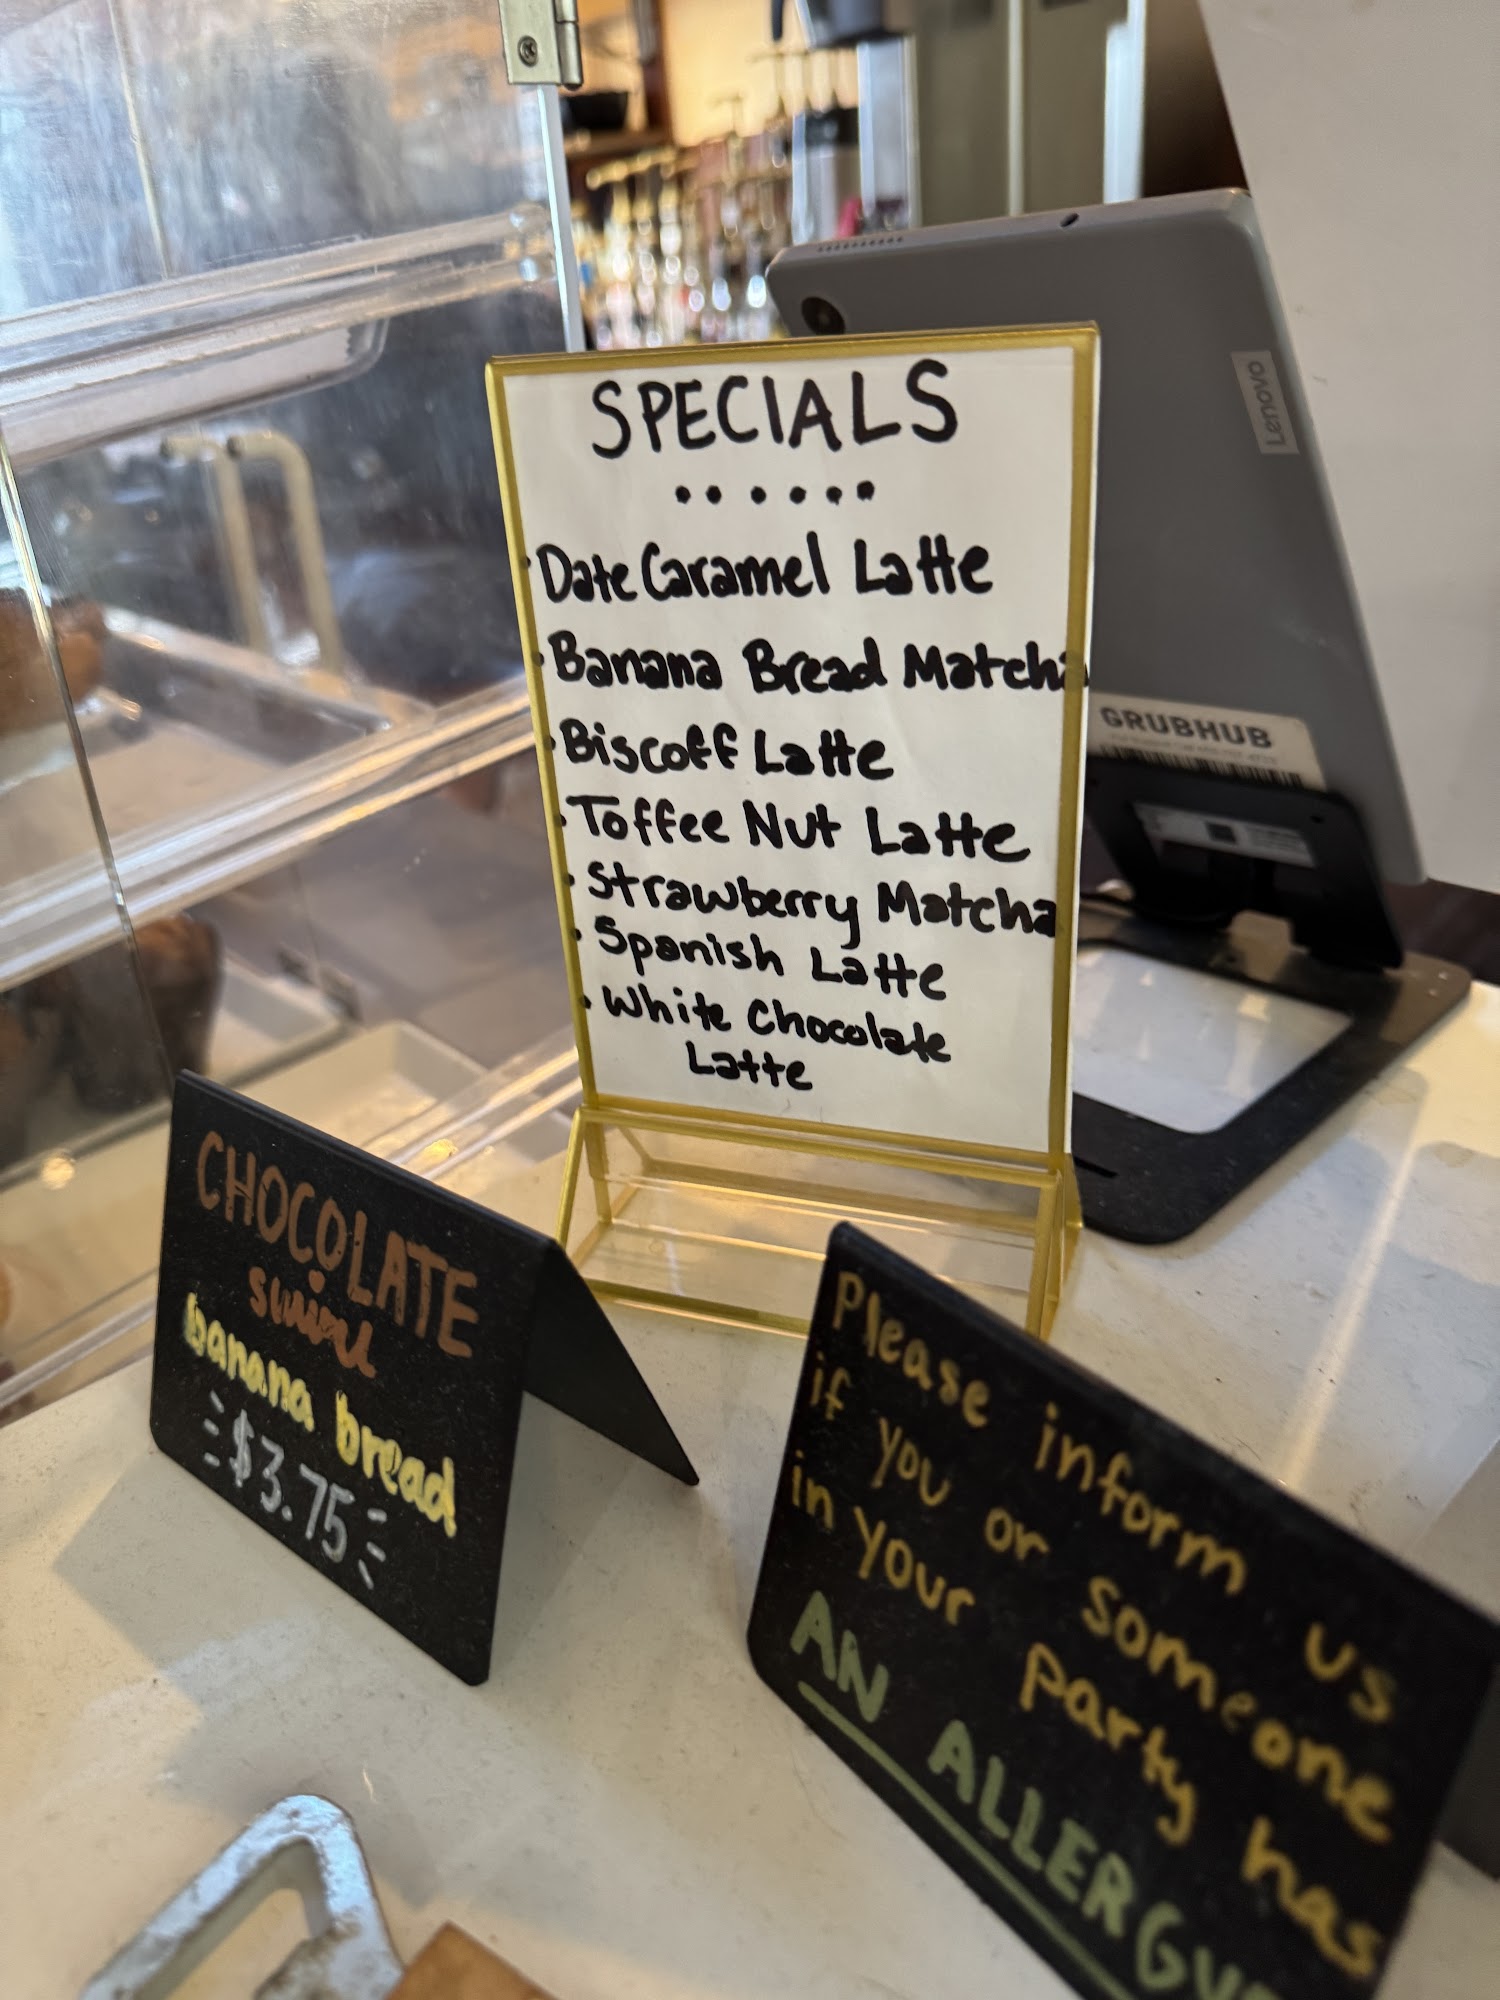 SPECIALS
• Date Caramel Latte
• Banana Bread Matcha
• Biscoff Latte
• Toffee Nut Latte
• Strawberry Matcha
• Spanish Latte
• White Chocolate
Latte
Lenovo
GRUBHUB
CHOCOLATE
swirl
banana bread
$3.75
Please inform us
if you or someone
in your party has
AN ALLERGY